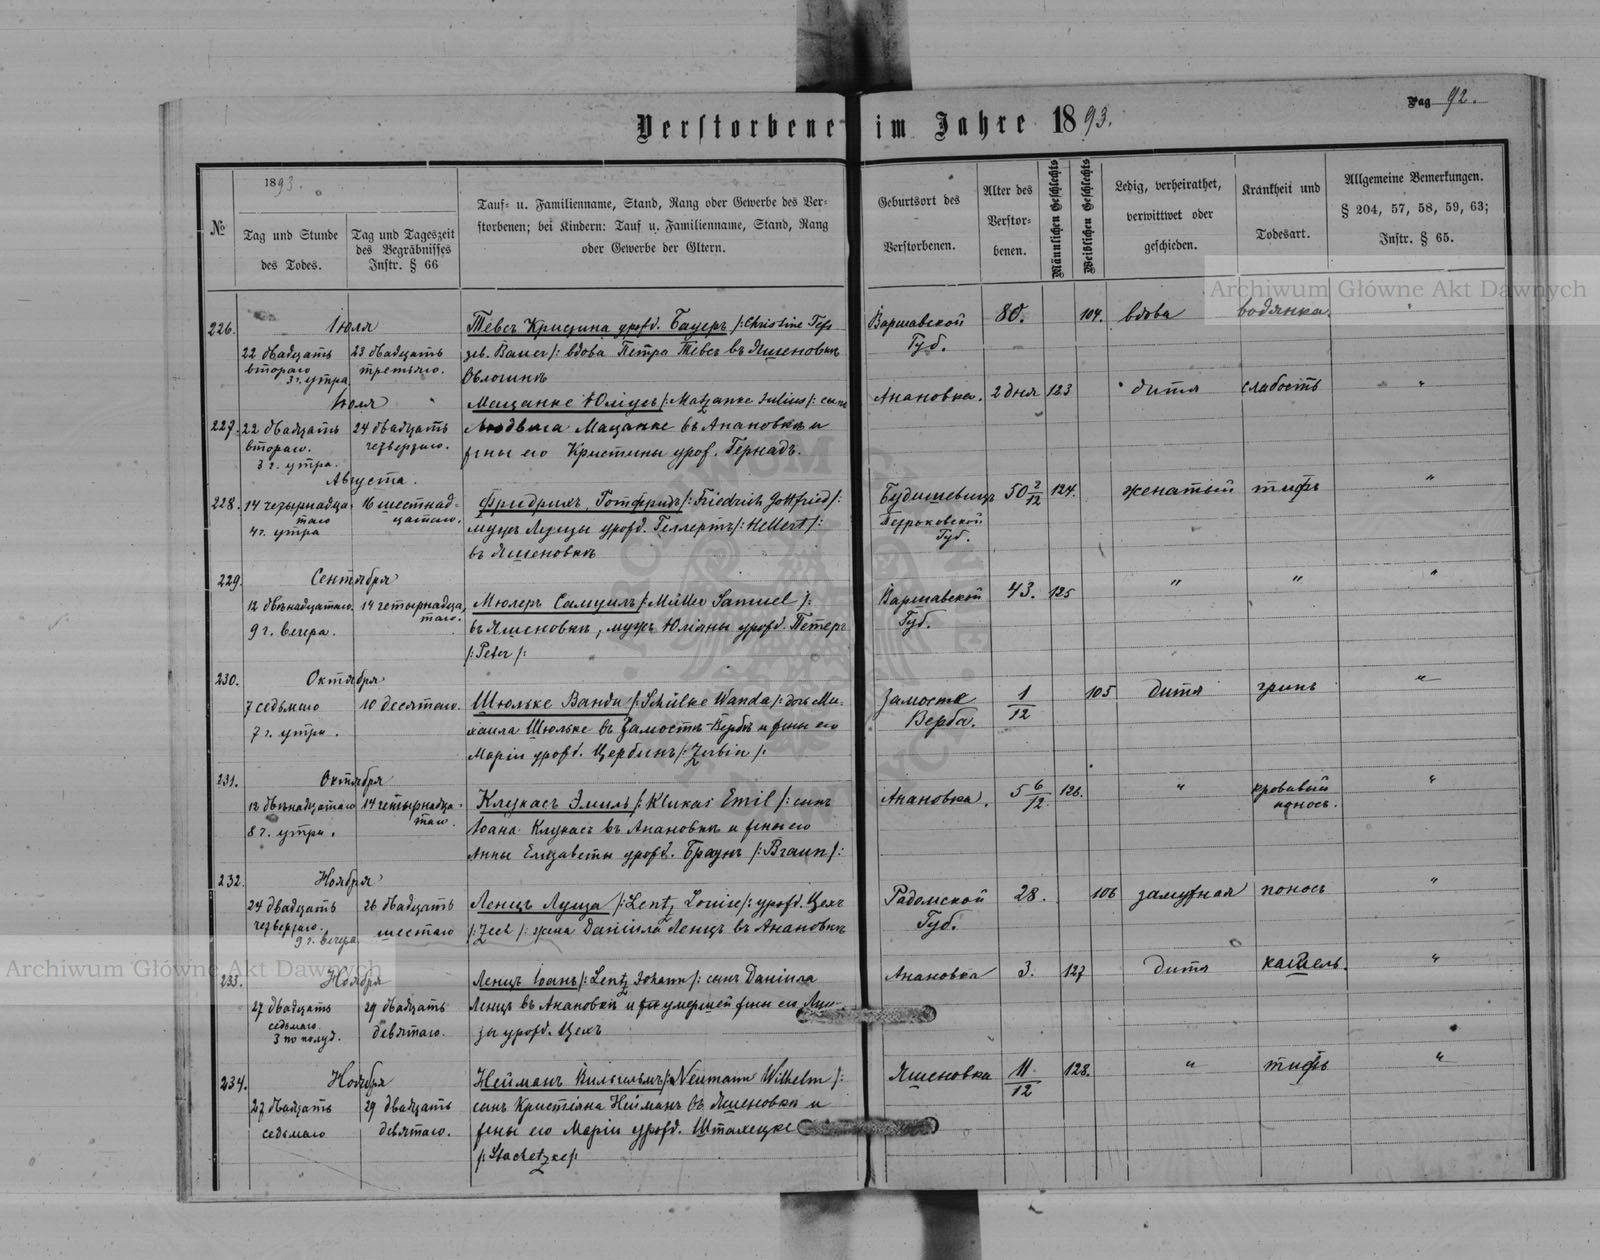 Pag 92.
Verstorbene im Jahre 1893.
№
1893.
Tag und Stunde
des Todes.
Tag und Tageszeit
des Begräbnisses
Instr. § 66
Tauf- u. Familienname, Stand, Rang oder Gewerbe des Ver-
storbenen; bei Kindern: Tauf u. Familienname, Stand, Rang
oder Gewerbe der Eltern.
Geburtsort des
Verstorbenen.
Alter des
Verstor-
benen.
Männlichen Geschlechts
Weiblichen Geschlechts
Ledig, verheirathet,
verwittwet oder
geschieden.
Krankheit und
Todesart.
Allgemeine Bemerkungen.
§ 204, 57, 58, 59, 63;
Instr. § 65.
Archiwum Główne Akt Dawnych
226.
Іюля
22 двадцать
втораго
3 г. утра
23 двадцать
третьяго.
Тевсъ Кристина урожд. Бауеръ /: Christine Tefs
geb. Bauer :/ вдова Петра Тевсъ въ Яшеновкѣ
Варшавской
Губ.
80.
104.
вдова
водянка
"
227.
Іюля
22 двадцать
втораго.
3 г. утра.
24 двадцать
четвертаго.
Мацанке Юліусъ /: Matzanke Julius /: сынъ
Людвига Мацанке въ Анановкѣ и
жены его Кристины урож.
Анановка.
2 дня
123
дитя
слабость
"
228.
Августа.
14 четырнадца-
таго
4 г. утра
16 шестнад-
цатаго.
Фридрихъ, Готфридъ /: Friedrich Gottfried /:
мужъ Луизы урожд. Геллертъ /: Hellert /:
въ Яшеновкѣ
Губ.
50 2/12
124.
женатый
тифъ
"
229.
Сентября
12 двѣнадцатаго.
9 г. вечера.
14 четырнадца-
таго.
Мюлеръ Самуилъ /: Müller Samuel /:
въ Яшеновкѣ, мужъ Юліаны урожд. Петеръ
/: Peter /:
Варшавской
Губ.
43.
125
"
"
"
230.
Октября
7 седьмаго
7 г. утра.
10 десятаго.
Шюльке Ванда /: Schülke Wanda /: дочь Ми-
хаила Шюльке въ Замостѣ-Вербѣ и жены его
Маріи урожд. Цербинъ /: Zerbin /:
Замостѣ
Верба.
1/12
105
дитя
грипъ
"
231.
Октября
12 двѣнадцатаго
8 г. утра.
14 четырнадца-
таго.
Клукасъ Эмиль /: Klukas Emil /: сынъ
Іоана Клукасъ въ Анановкѣ и жены его
Анны Елизаветы урожд. Браунъ /: Braun /:
Анановка.
5 6/12.
126.
"
кровавый
поносъ.
"
232.
Ноября
24 двадцать
четвертаго.
9 г. вечера.
26 двадцать
шестаго
Ленцъ Луиза /: Lentz Louise /: урожд. Цехъ
/: Zech /: жена Даніила Ленцъ въ Анановкѣ
Радомской
Губ.
28.
106
замужная
поносъ
"
Archiwum Główne Akt Dawnych
233.
Ноября
27 двадцать
седьмаго.
3 по полуд.
29 двадцать
девятаго.
Ленцъ Іоанъ /: Lentz Johann /: сынъ Даніила
Ленцъ въ Анановкѣ и умершей жены его Луи-
зы урожд. Цехъ
Анановка
3.
127
дитя
кашель.
"
234.
Ноября
27 двадцать
седьмаго
29 двадцать
девятаго.
Нейманъ Вильгельмъ /: Neumann Wilhelm /:
сынъ Кристіана Нейманъ въ Яшеновкѣ и
жены его Маріи урожд. Штахецке
/: Stachetzke /:
Яшеновка
11/12
128.
"
тифъ
"